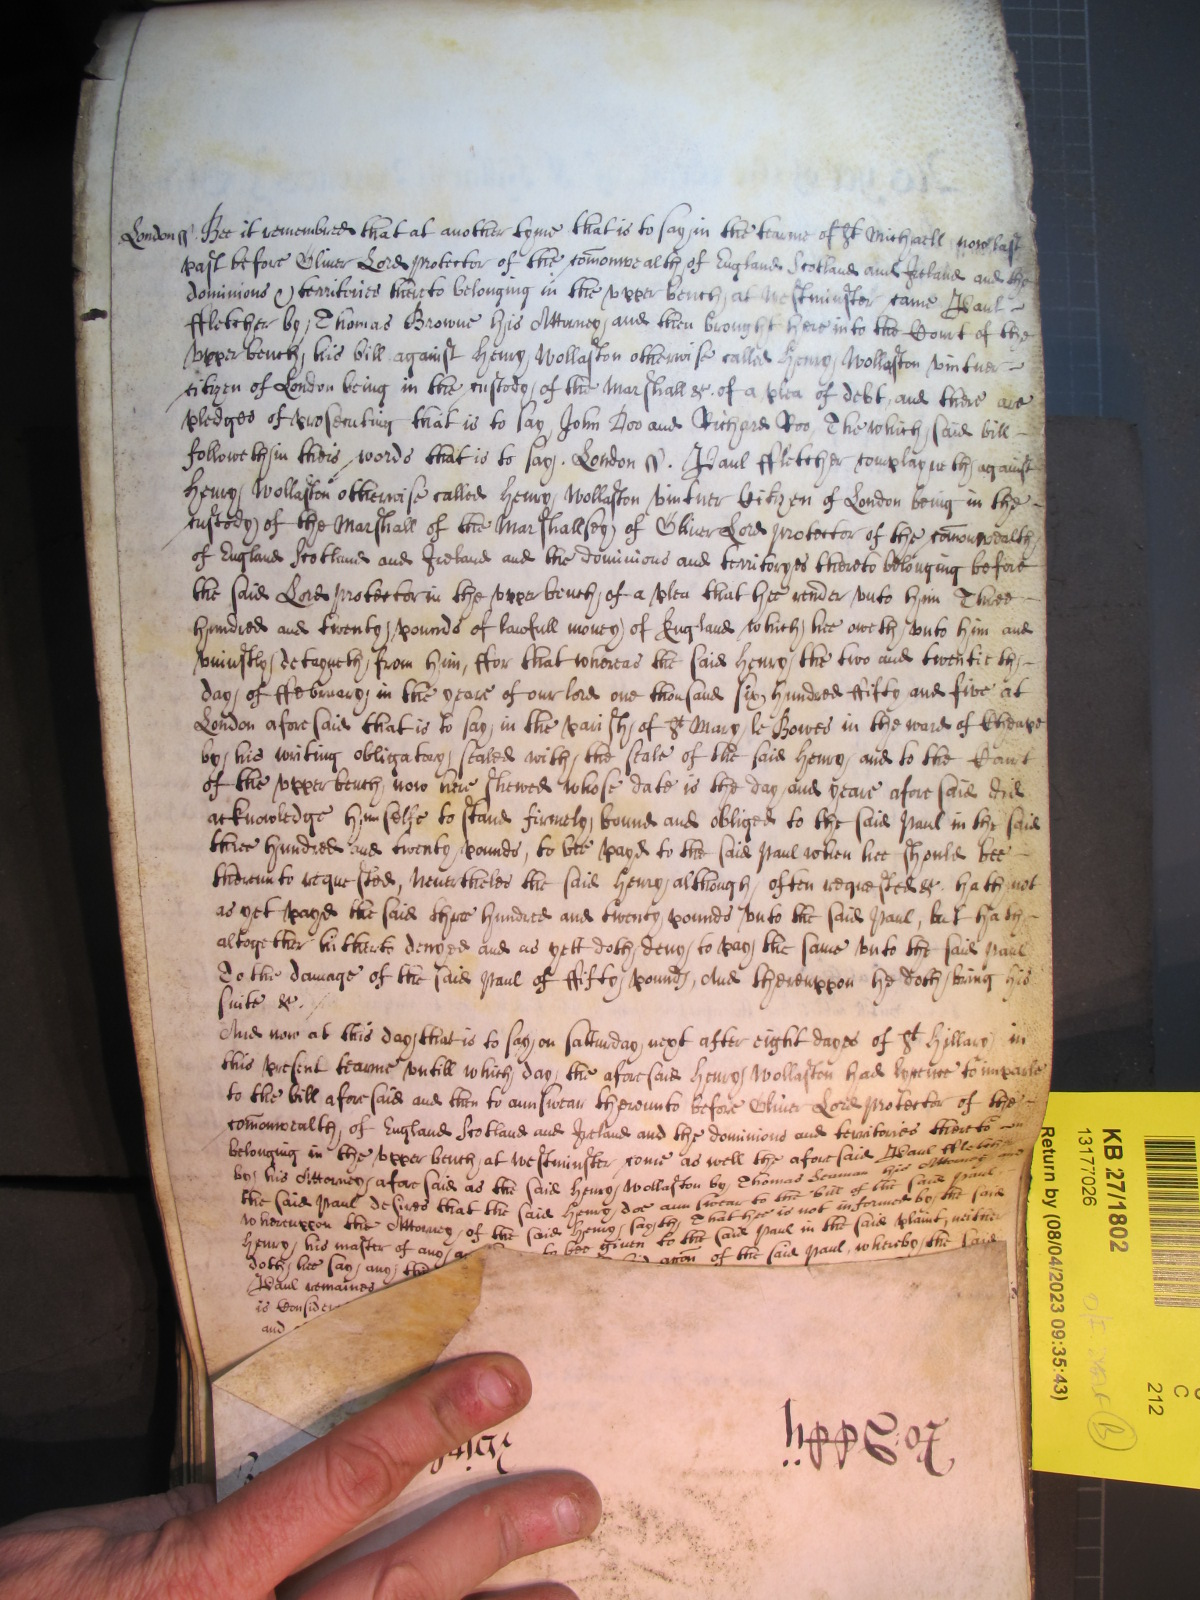 London ss. Bee it remembred that at another tyme that is to say, in the tearme of St Michaell now last
past before Oliver Lord protector of the comonwealth of England Scotland and Ireland and the
dominions & territories thereto belonging in the vpper bench, at westminster came Paul
ffletcher by Thomas Browne his Attorney, and then brought here into the Court of the
vpper bench, his bill against Henry Wollaston otherwise called Henry Wollaston vintner
citizen of London being in the custody of the Marshall &c. of a plea of debt, and there are
pledges of prosecuting that is to say, John Doo and Richard Roo, The which said bill
followeth in theis words that is to say. London ss. Paul ffletcher complayneth against
Henry Wollaston otherwise called Henry Wollaston vintner Citizen of London being in the
custody of the Marshall of the Marshallsey of Oliver Lord protector of the comonwealth
of England Scotland and Ireland and the dominions and territoryes thereto belonging before
the said Lord protector in the vpper bench, of a plea that hee render vnto him Three
hundred and twenty pounds of lawfull money of England which hee oweth vnto him and
vniustly detayneth from him, ffor that whereas the said Henry the two and twentieth
day of ffebruary in the yeare of our lord one thousand six hundred ffifty and five at
London aforesaid that is to say, in the parish of St Mary le Bowes in the ward of Cheape
by his writing obligatory sealed with the seale of the said Henry, and to the Court
of the vpper bench now here shewed whose date is the day and yeare aforesaid did
acknowledge himselfe to stand firmely bound and obliged to the said Paul in the said
three hundred and twenty pounds, to bee payd to the said Paul when hee should bee
therevnto requested, Neverthelesse the said Henry although often requested &c. hath not
as yet payd the said three hundred and twenty pounds vnto the said Paul, but hath
altogether hitherto denyed and as yett doth deny to pay the same vnto the said Paul
To the damage of the said Paul of ffifty pounds, And therevppon he doth bring his
suite &c.
And now at this day, that is to say on satturday next after eight dayes of St Hillary in
this present tearme vntill which day, the aforesaid Henry Wollaston had lycence to imparle
to the bill aforesaid and then to aunswear therevnto before Oliver Lord protector of the
comonwealth of England Scotland and Ireland and the dominions and territories thereto
belonging in the vpper bench, at westminster, come as well the aforesaid Paul ffletcher
by his Attorney aforesaid as the said Henry Wollaston by Thomas his Attorney and
the said Paul desires that the said Henry doe aunswear to the bill of the said Paul
wherevppon the Attorney of the said Henry, sayth, That hee is not informed by the said
Henry, his master of any to bee given to the said Paul in the said plaint, neither
doth hee say any of the said Paul, whereby the said
Paul remaines
is
and
KB 27/1802
13177026
Return by (08/04/2023 09:35:43)
C
212